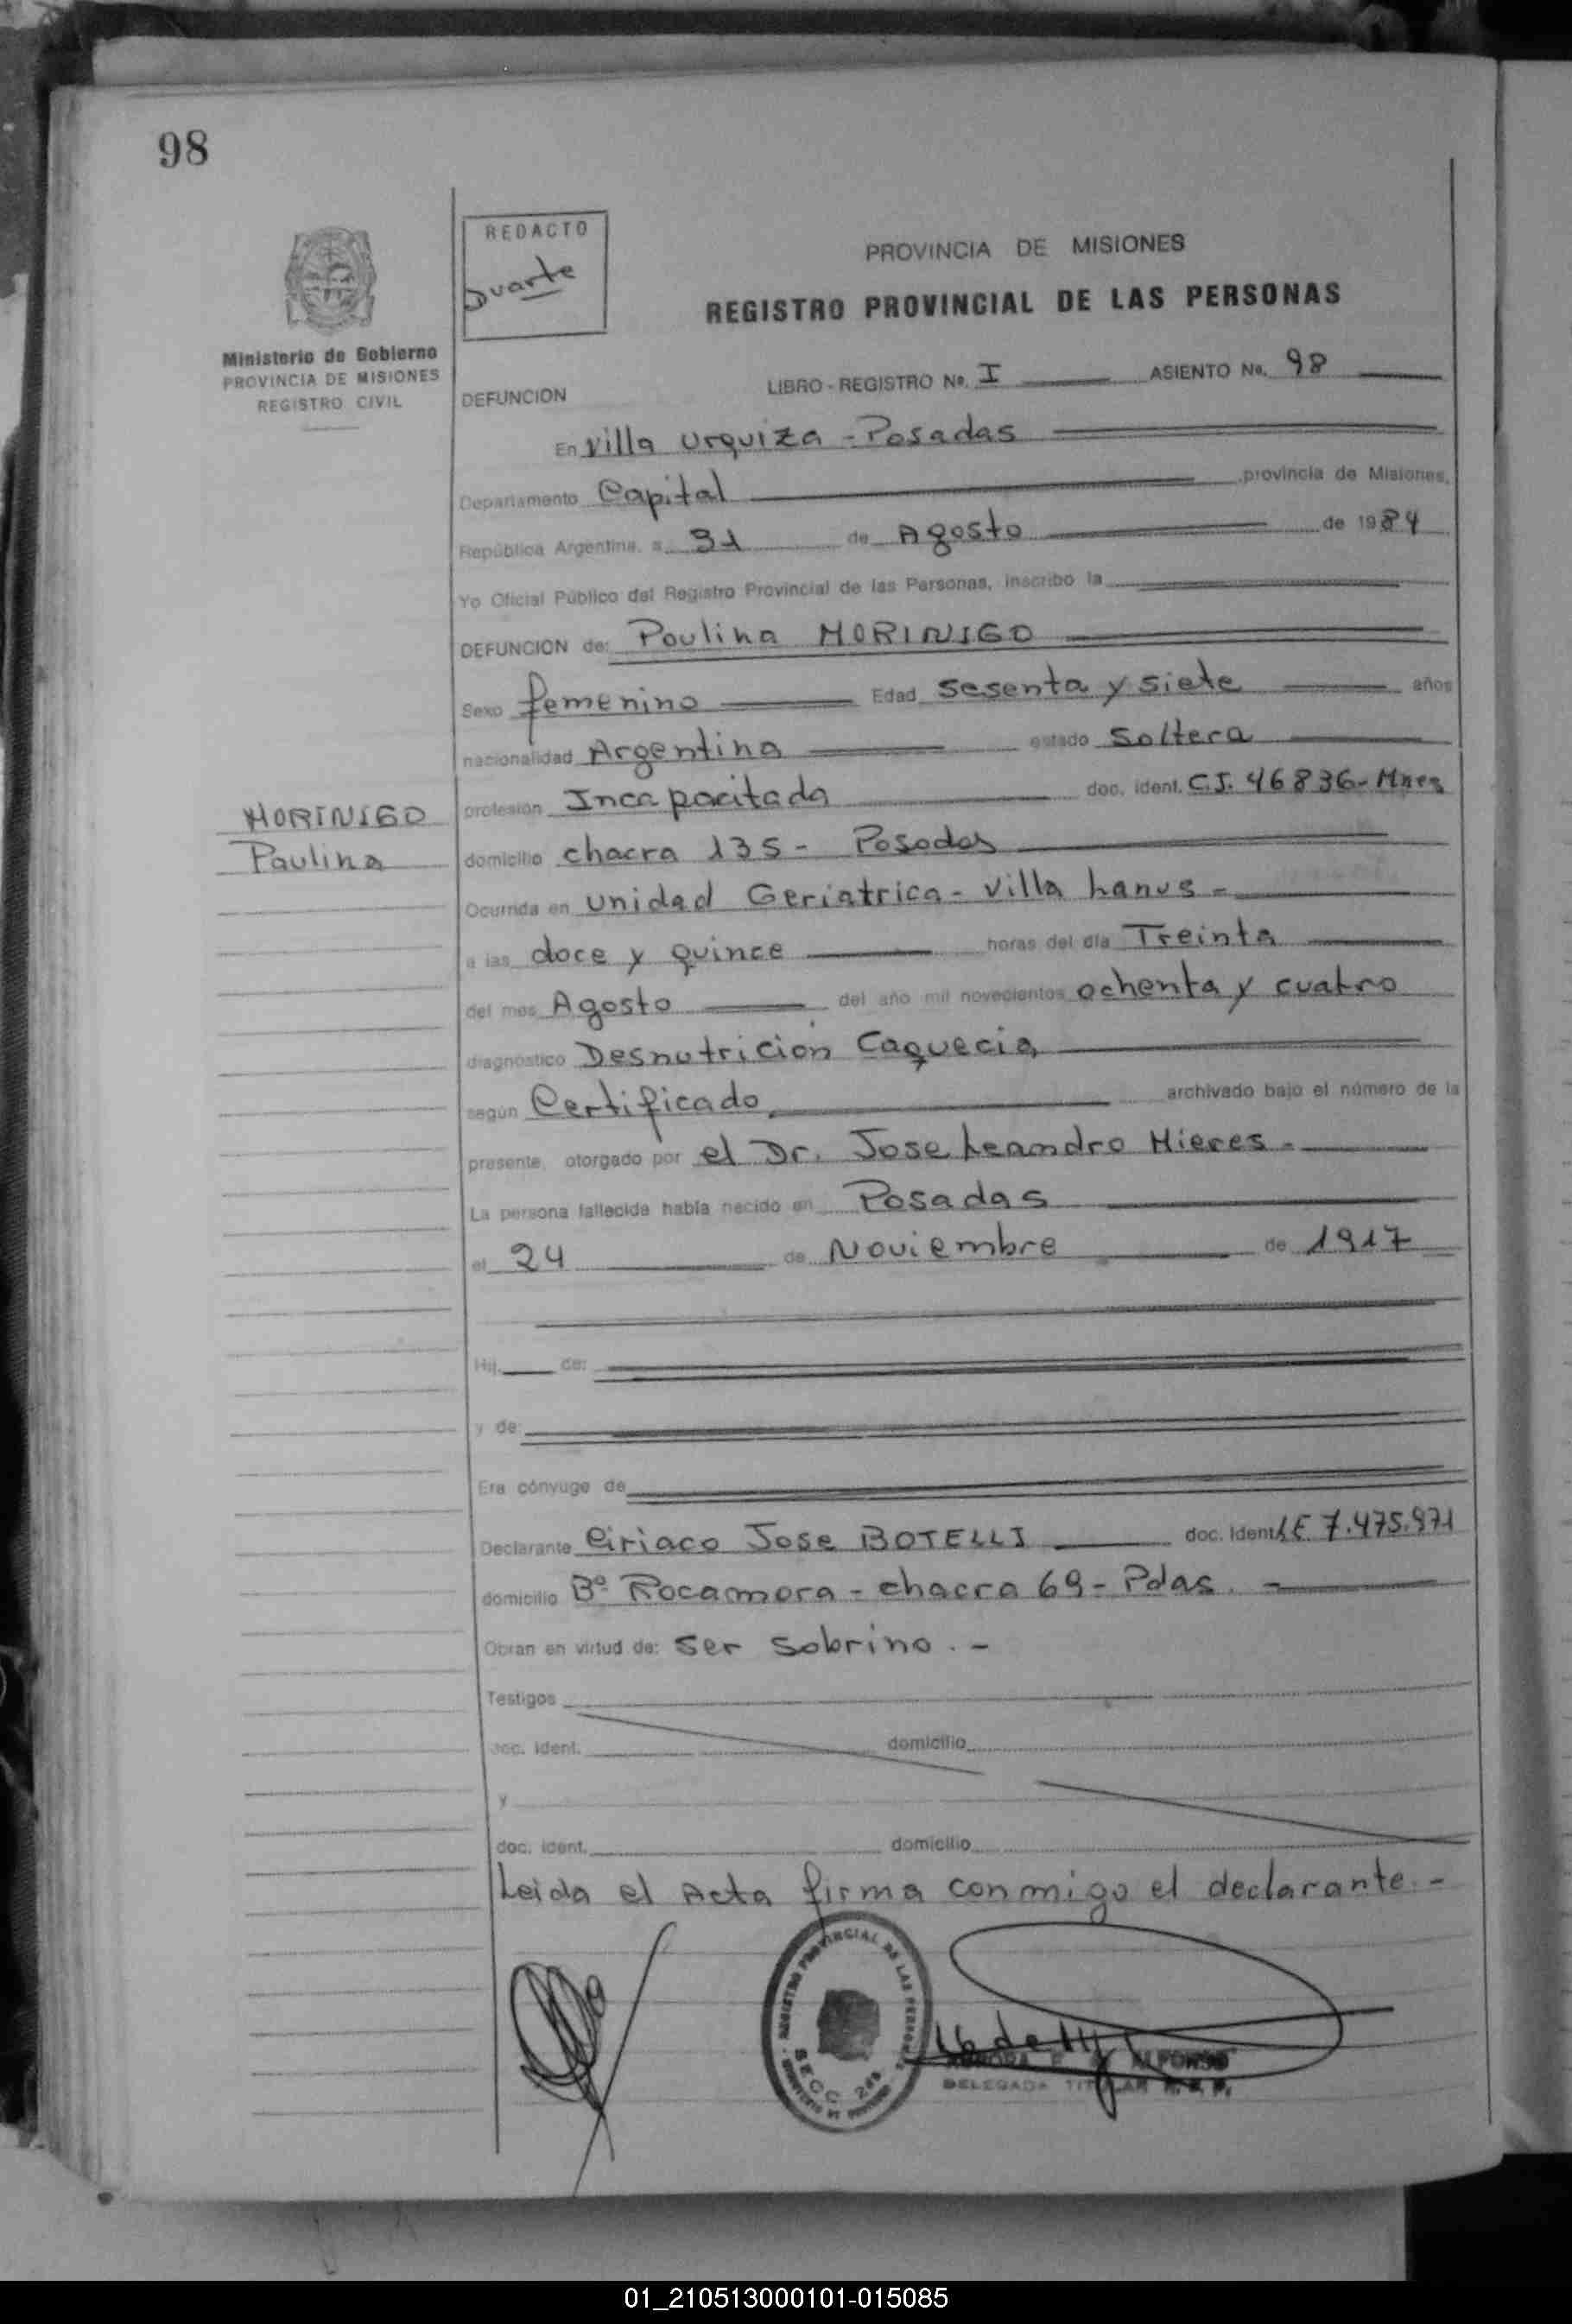 98
REDACTO
Duarte
PROVINCIA DE MISIONES
REGISTRO PROVINCIAL DE LAS PERSONAS
Ministerio de Gobierno
PROVINCIA DE MISIONES
REGISTRO CIVIL
DEFUNCION
LIBRO - REGISTRO No. I ASIENTO No. 98
En Villa Urquiza - Posadas
Departamento Capital provincia de Misiones,
República Argentina, a 31 de Agosto de 1984
Yo Oficial Público del Registro Provincial de las Personas, inscribo la
DEFUNCION de: Paulina MORINIGO
Sexo femenino Edad sesenta y siete años
nacionalidad Argentina estado soltera
MORINIGO
Paulina
profesión Incapacitada doc. ident. C.I. 46836- Mnes
domicilio chacra 135 - Posadas
Ocurrida en Unidad Geriatrica - Villa Lanus -
a las doce y quince horas del día Treinta
del mes Agosto del año mil novecientos ochenta y cuatro
diagnóstico Desnutrición Caquecia
según Certificado archivado bajo el número de la
presente, otorgado por el Dr. Jose Leandro Mieres -
La persona fallecida había nacido en Posadas
el 24 de Noviembre de 1917
Hij de:
y de:
Era cónyuge de
Declarante Ciriaco Jose BOTELLI doc. Ident LE 7.475.971
domicilio Bº Rocamora - chacra 69 - Pdas. -
Obran en virtud de: ser sobrino . -
Testigos
doc. ident. domicilio
y
doc. ident. domicilio
Leida el Acta firma conmigo el declarante. -
REGISTRO PROVINCIAL DE LAS PERSONAS
SECC.
ALFONSO
DELEGADA TITULAR R. P. P.
01_210513000101-015085